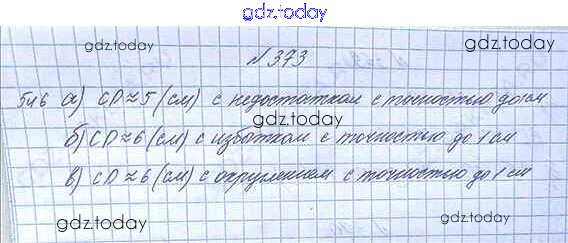 gdz.today
gdz.today
gdz.today
№373
546 а) CD≈5 (см) с недостатком с точностью до 1 см
gdz.today
б) CD≈6 (см) с избытком с точностью до 1 см
в) CD≈6 (см) с округлением с точностью до 1 см
gdz.today
gdz.today